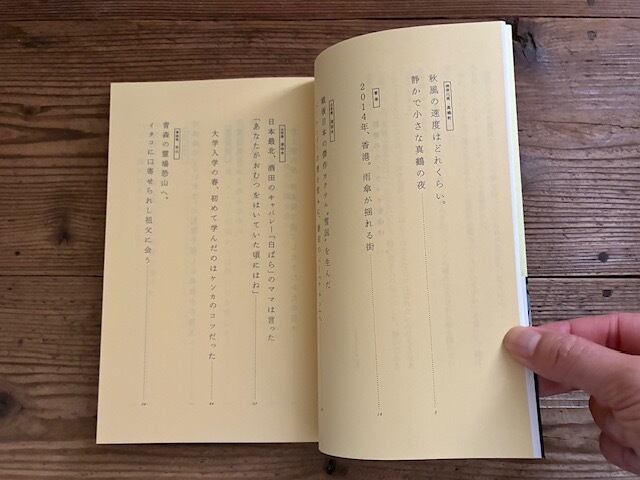 秋風の速度はどれくらい、
静かで小さな真鶴の夜
香港
2014年、香港。雨傘が揺れる街
戦後日本の傑作カクテル“雪国”を生んだ
日本最北、酒田のキャバレー「白ばら」のママは言った
「あなたがおむつをはいていた頃にはね」
大学入学の春、初めて学んだのはケンカのコツだった
青森の霊場恐山へ。
イタコに口寄せられし祖父に会う